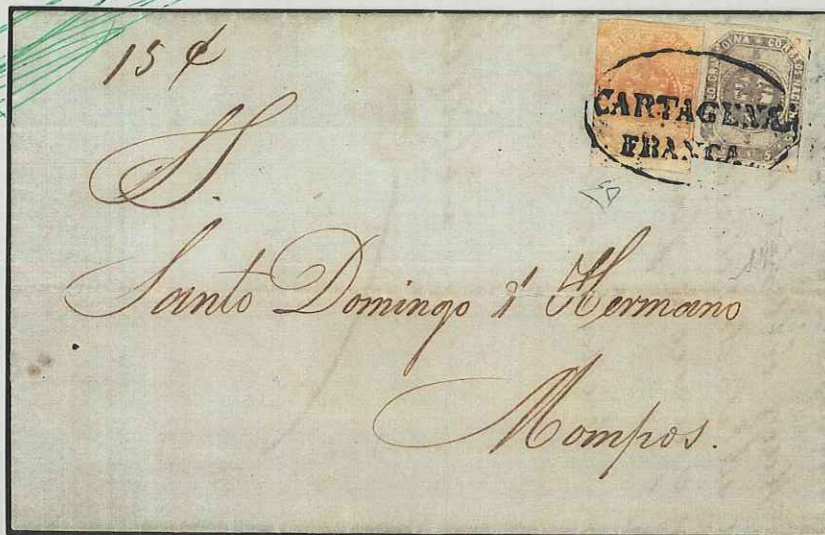 15 ¢
CARTAGENA
FRANCA
S.
Santo Domingo i Hermano
Mompos.